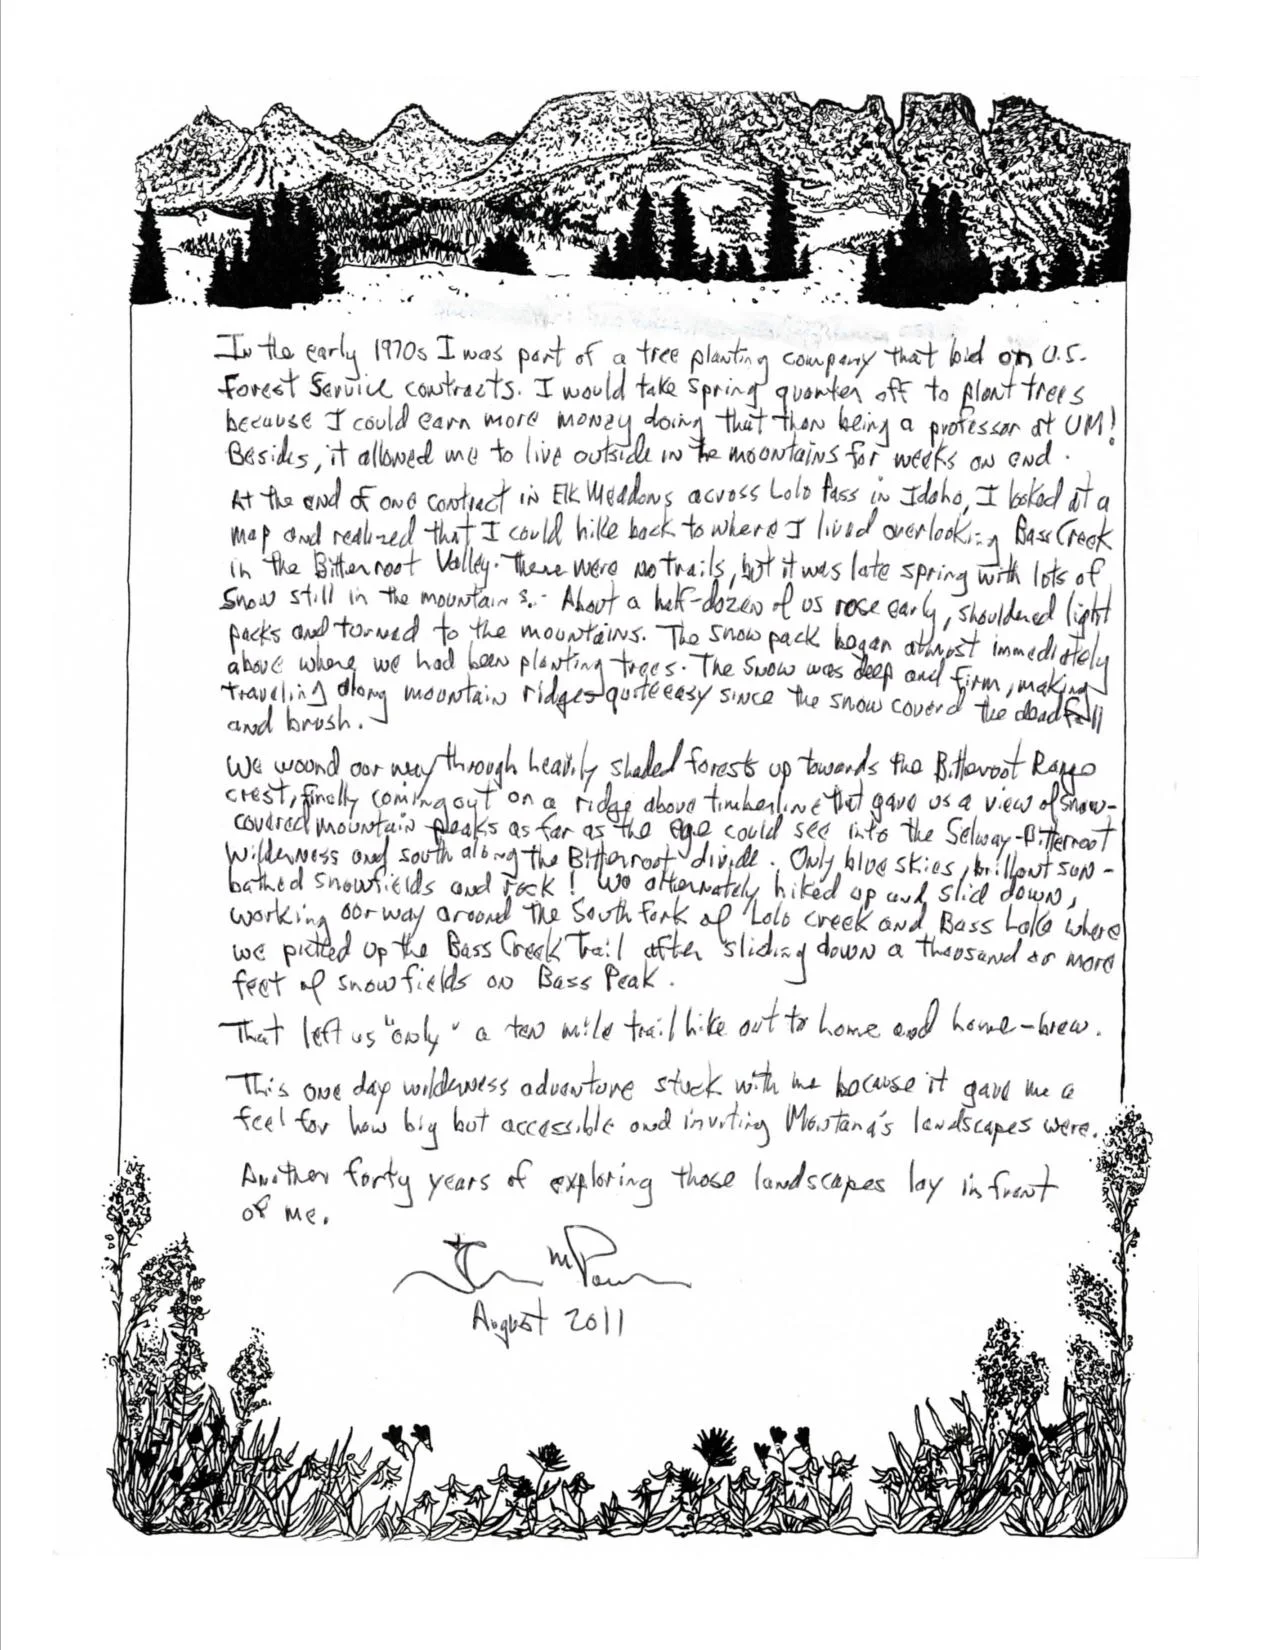 In the early 1970s I was part of a tree planting company that bid on U.S.
Forest Service contracts. I would take spring quarter off to plant trees
because I could earn more money doing that than being a professor at UM!
Besides, it allowed me to live outside in the mountains for weeks on end.
At the end of one contract in Elk Meadows across Lolo Pass in Idaho, I looked at a
map and realized that I could hike back to where I lived overlooking Bass Creek
in the Bitterroot Valley. There were no trails, but it was late spring with lots of
snow still in the mountains. About a half-dozen of us rose early, shouldered light
packs and turned to the mountains. The snow pack began almost immediately
above where we had been planting trees. The snow was deep and firm, making
traveling along mountain ridges quite easy since the snow coverd the deadfall
and brush.
We wound our way through heavily shaded forests up towards the Bitterroot Range
crest, finally coming out on a ridge above timberline that gave us a view of snow-
covered mountain peaks as far as the eye could see into the Selway-Bitterroot
Wilderness and south along the Bitterroot divide. Only blue skies, brillant sun-
bathed snowfields and rock! We alternately hiked up and slid down,
working our way around the South fork of Lolo Creek and Bass Lake where
we picked up the Bass Creek Trail after sliding down a thousand or more
feet of snowfields on Bass Peak.
That left us "only" a ten mile trail hike out to home and home-brew.
This one day wilderness adventure stuck with me because it gave me a
feel for how big but accessible and inviting Montana's landscapes were.
Another forty years of exploring those landscapes lay in front
of me.
August 2011